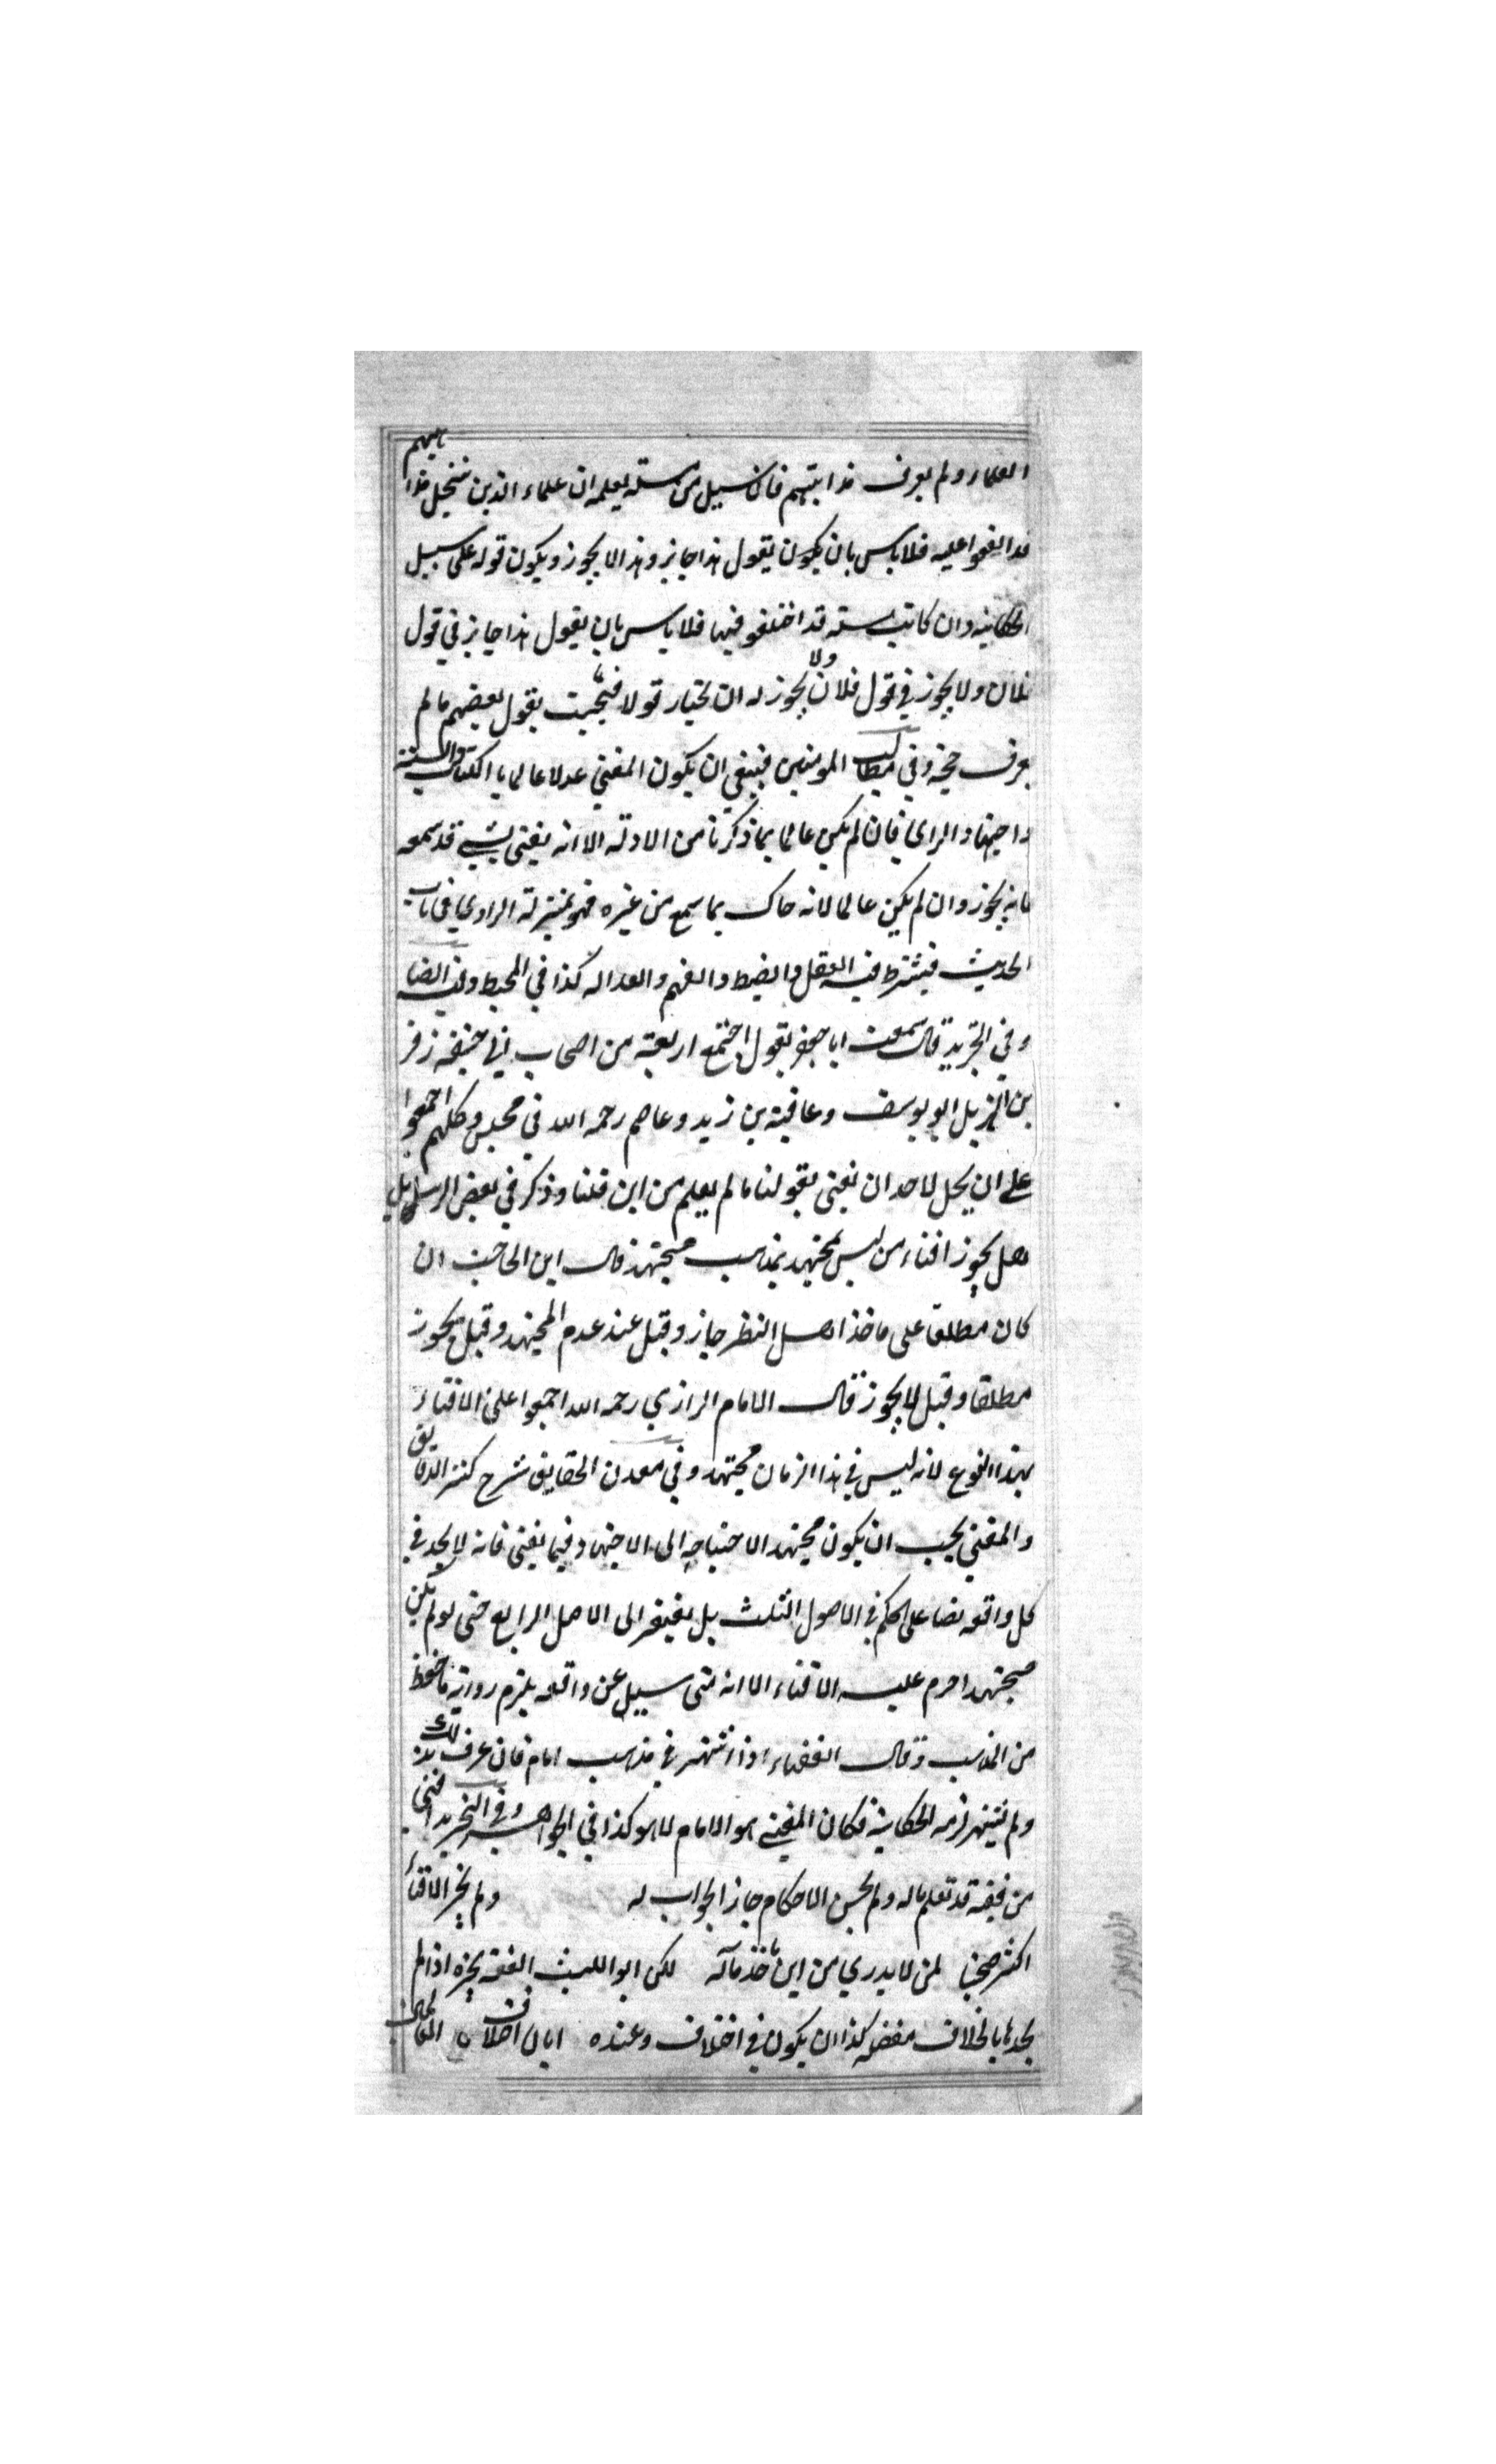 العلماء ولم يعرف مذاهبهم فان سيل من مسئلة يعلم ان علماء الذين ينتحل مذاهبهم
قد اتفقوا عليه فلا باس بان يكون يقول هذا جايز وهذا لا يجوز ويكون قوله على سبيل
الحكاية وان كانت مسئلة قد اختلفوا فيها فلا باس بان يقول هذا جايز في قول
فلان ولا يجوز في قول فلان ولا يجوز له ان يختار قولا فيجيب بقول بعضهم ما لم
يعرف حجته وفي مطالب المومنين فينبغي ان يكون المفتي عدلا عالما بالكتاب والسنة
واجتهاد الراى فان لم يكن عالما بما ذكرنا من الادلة الا انه يفتى بشيء قد سمعه
فانه يجوز وان لم يكن عالما لانه حاك بما سمع من غيره فهو بمنزلة الراوي في باب
الحديث فيشترط فيه العقل والضبط والفهم والعدالة كذا في المحيط وفيه ايضا
وفي التجريد قال سمعت ابا جعفر يقول اجتمع اربعة من اصحاب ابي حنيفة زفر
بن الهزيل ابو يوسف وعافية بن زيد وعاصم رحمه الله في مجلس وكلهم اجمعوا
على ان يحل لاحد ان يفتى بقولنا ما لم يعلم من اين قلنا وذكر في بعض الرسايل
هل يجوز افتاء من ليس بمجتهد بمذهب مجتهد قال ابن الحاجب ان
كان مطلقا على ماخذ اهل النظر جاز وقيل عند عدم المجتهد وقيل يجوز
مطلقا وقيل لا يجوز قال الامام الرازي رحمه الله اجمعوا على الافتاء
بهذا النوع لانه ليس في هذا الزمان مجتهد وفي معدن الحقايق شرح كنز الدقايق
والمفتي يجب ان يكون مجتهدا لاحتياجه الى الاجتهاد فيما يفتى فانه لا يجد في
كل واقعه نصا على الحكم في الاصول الثلث بل يفتقر الى الاصل الرابع حتى لو لم يكن
مجتهدا حرم عليه الافتاء الا انه متى سيل عن واقعه يلتزم رواية ما حفظ
من المذهب وقال الفقهاء اذا اشتهر في مذهب امام فان عرف بذلك
ولم يشتهر لزمه الحكاية فكان المفتي هو الامام لا هو كذا في الجواهر وفي التجريد افتى
من فيقه قد تعلم ماله ولم يحسن الاحكام جاز الجواب له ولم يجز الافتاء
اكثر صحبنا لمن لا يدري من اين ماخذ ماله لكن ابو الليث الفقه يجزه اذا لم
يجد بالخلاف مفضله كذا ان يكون في اختلاف وعنده